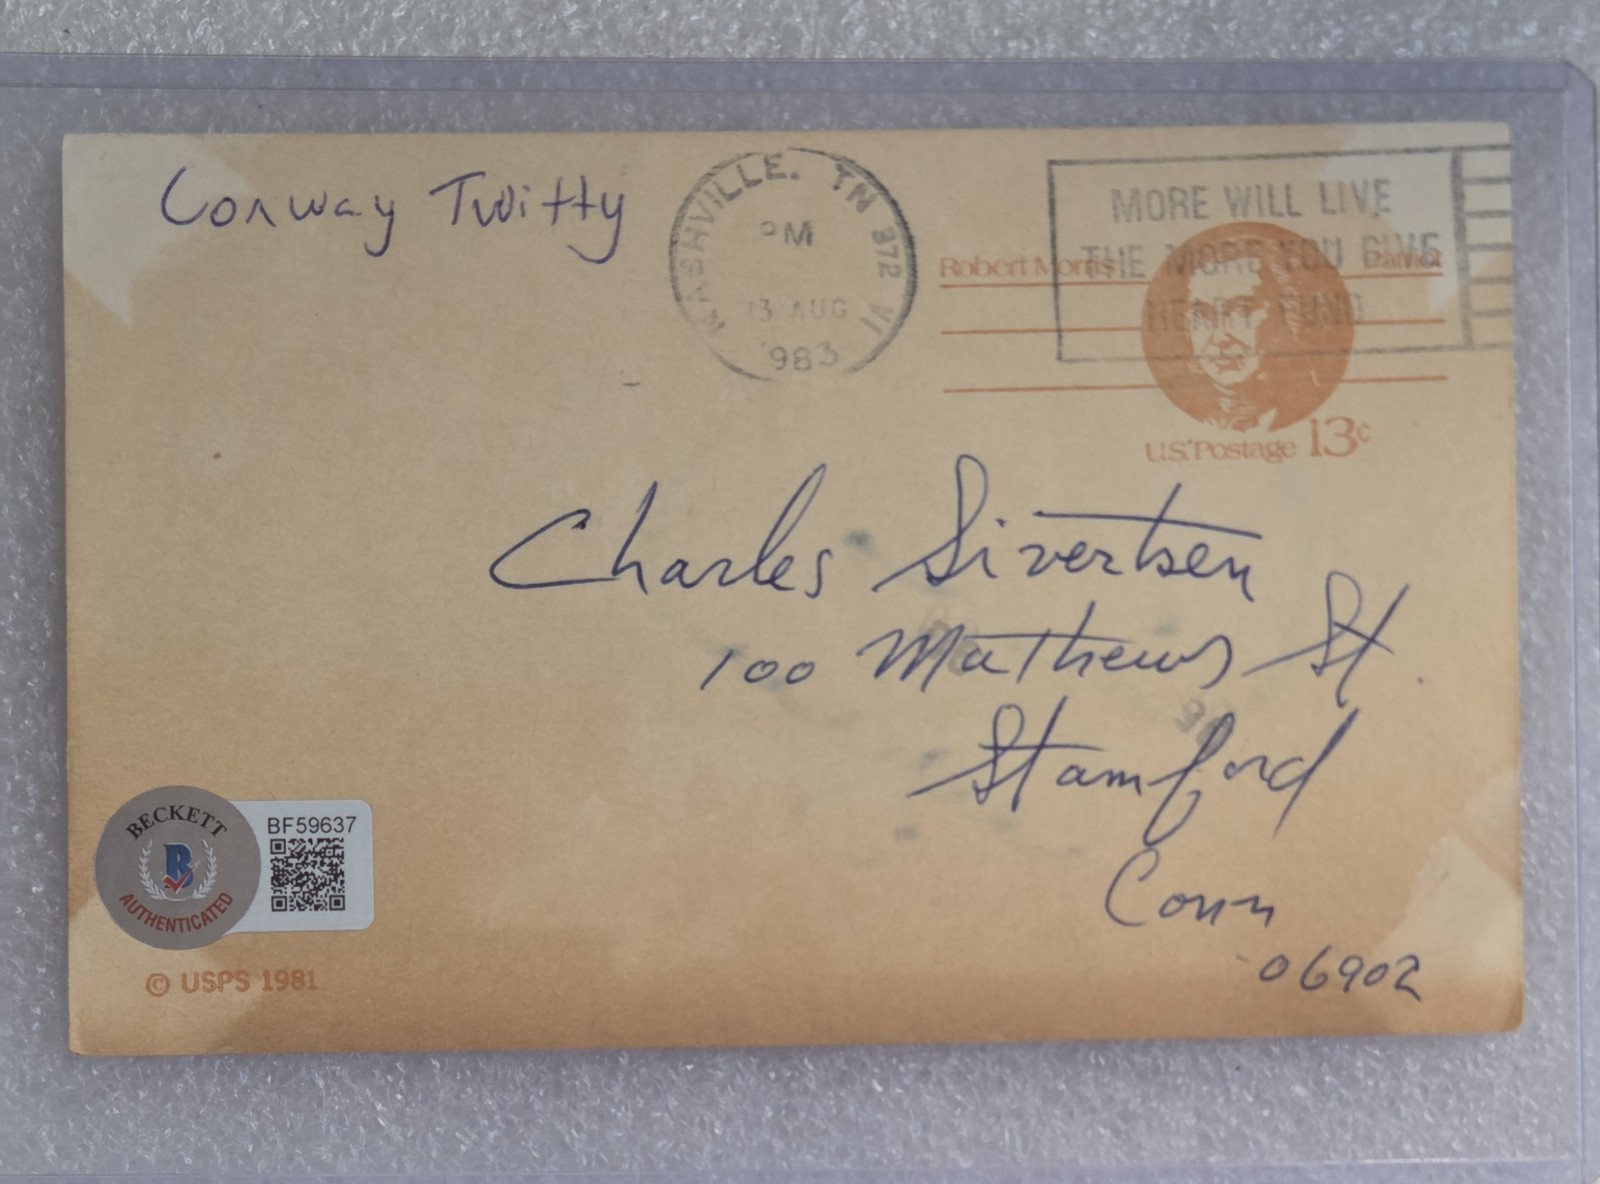 Conway Twitty
NASHVILLE. TN 372
PM
13 AUG
1983
MORE WILL LIVE
THE MORE YOU GIVE
HEART FUND
Robert Morris
Patriot
U.S. Postage 13¢
Charles Sivertsen
100 Mathews St.
Stamford
Conn
06902
BECKETT
B
AUTHENTICATED
BF59637
© USPS 1981